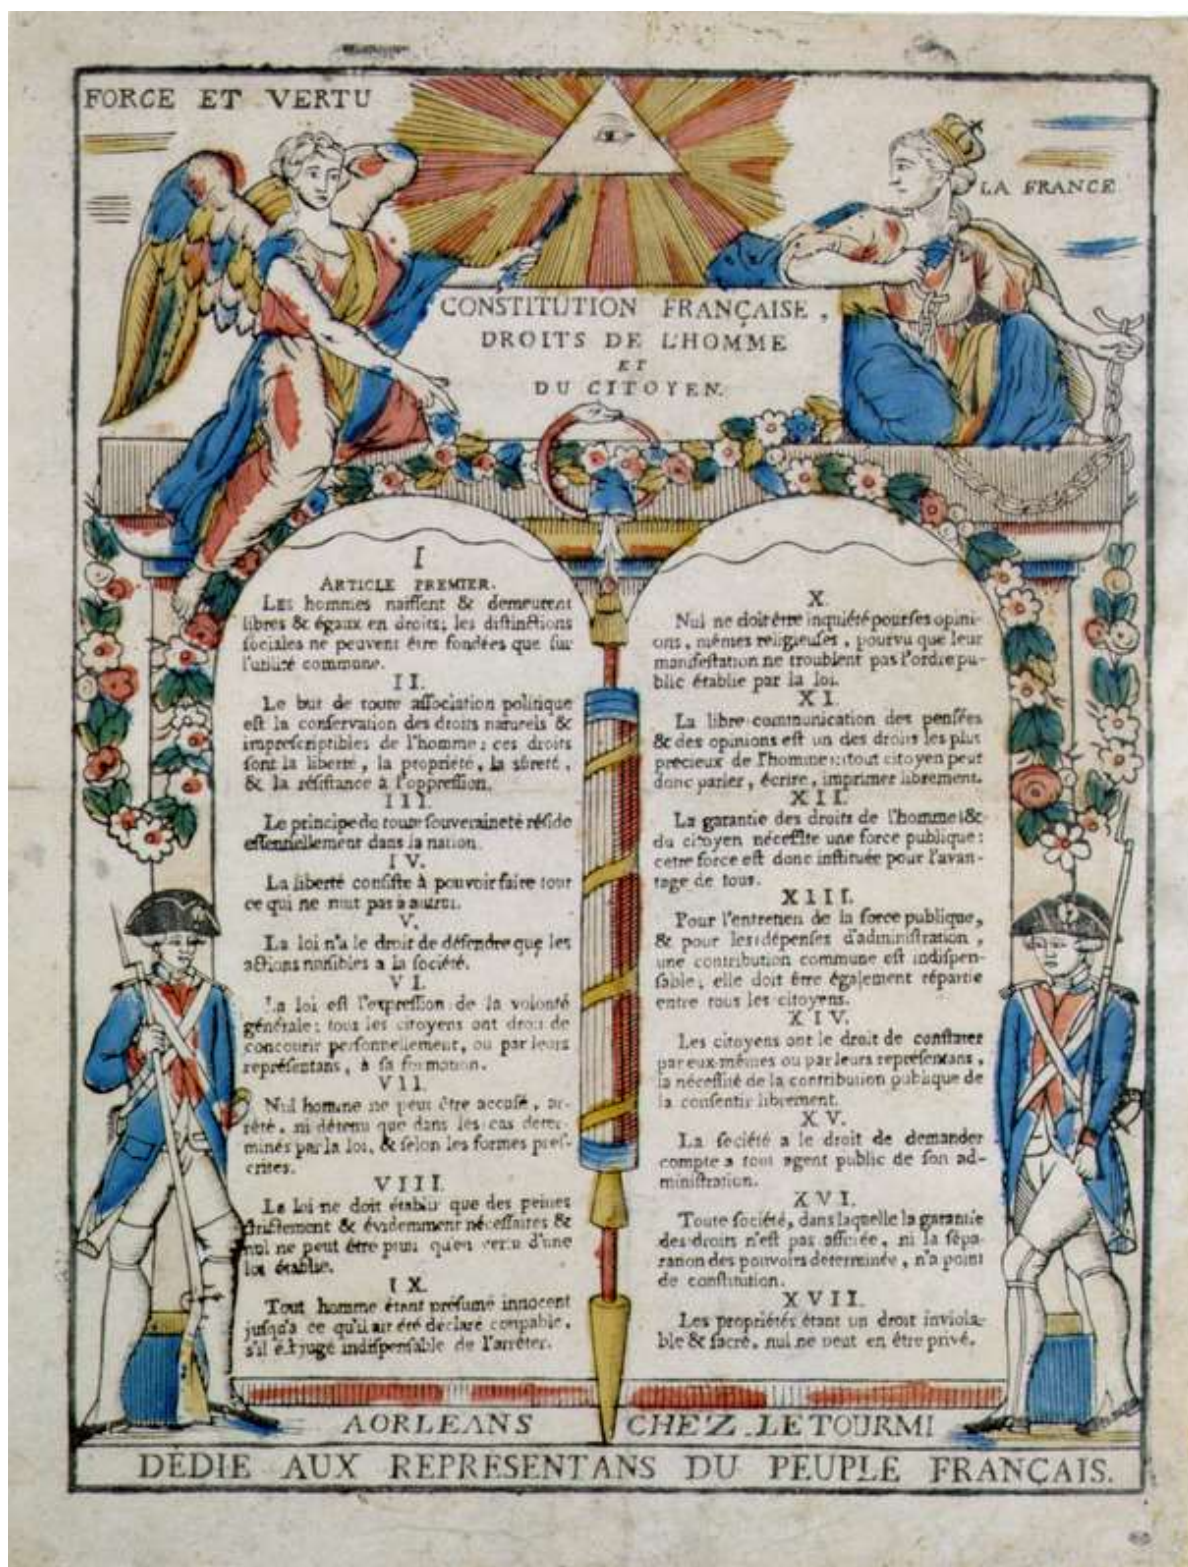 FORCE ET VERTU
LA FRANCE
CONSTITUTION FRANÇAISE,
DROITS DE L'HOMME
ET
DU CITOYEN.
I
ARTICLE PREMIER.
LES hommes naiſſent & demeurent
libres & égaux en droits; les diſtinctions
ſociales ne peuvent être fondées que ſur
l'utilité commune.
II.
Le but de toute aſſociation politique
eſt la conſervation des droits naturels &
impreſcriptibles de l'homme; ces droits
ſont la liberté, la propriété, la sûreté,
& la réſiſtance à l'oppreſſion.
III.
Le principe de toute ſouveraineté réſide
eſſentiellement dans la nation.
IV.
La liberté conſiſte à pouvoir faire tout
ce qui ne nuit pas à autrui.
V.
La loi n'a le droit de défendre que les
actions nuiſibles a la ſociété.
VI.
La loi eſt l'expreſſion de la volonté
générale; tous les citoyens ont droit de
concourir perſonnellement, ou par leurs
repréſentans, à ſa formation.
VII.
Nul homme ne peut être accuſé, ar-
rêté, ni détenu que dans les cas deter-
minés par la loi, & ſelon les formes preſ-
crites.
VIII.
La loi ne doit établir que des peines
ſtrictement & évidemment néceſſaires &
nul ne peut être puni qu'en vertu d'une
loi établie.
IX.
Tout homme étant préſumé innocent
juſqu'a ce qu'il ait été declaré coupable,
s'il eſt jugé indiſpenſable de l'arrêter.
X.
Nul ne doit être inquiété pour ſes opini-
ons, mêmes religieuſes, pourvu que leur
manifeſtation ne troublent pas l'ordre pu-
blic établie par la loi.
XI.
La libre communication des penſées
& des opinions eſt un des droits les plus
précieux de l'homme: tout citoyen peut
donc parler, écrire, imprimer librement.
XII.
La garantie des droits de l'homme &
du citoyen néceſſite une force publique:
cette force eſt donc inſtituée pour l'avan-
tage de tous.
XIII.
Pour l'entretien de la force publique,
& pour les dépenſes d'adminiſtration,
une contribution commune eſt indiſpen-
ſable; elle doit être également répartie
entre tous les citoyens.
XIV.
Les citoyens ont le droit de conſtater
par eux-mêmes ou par leurs repréſentans,
la néceſſité de la contribution publique de
la conſentir librement.
XV.
La ſociété a le droit de demander
compte a tout agent public de ſon ad-
miniſtration.
XVI.
Toute ſociété, dans laquelle la garantie
des droits n'eſt pas aſſurée, ni la ſépa-
ration des pouvoirs determinée, n'a point
de conſtitution.
XVII.
Les propriétés étant un droit inviola-
ble & ſacré, nul ne peut en être privé.
A ORLEANS CHEZ LETOURMI
DÉDIE AUX REPRESENTANS DU PEUPLE FRANÇAIS.